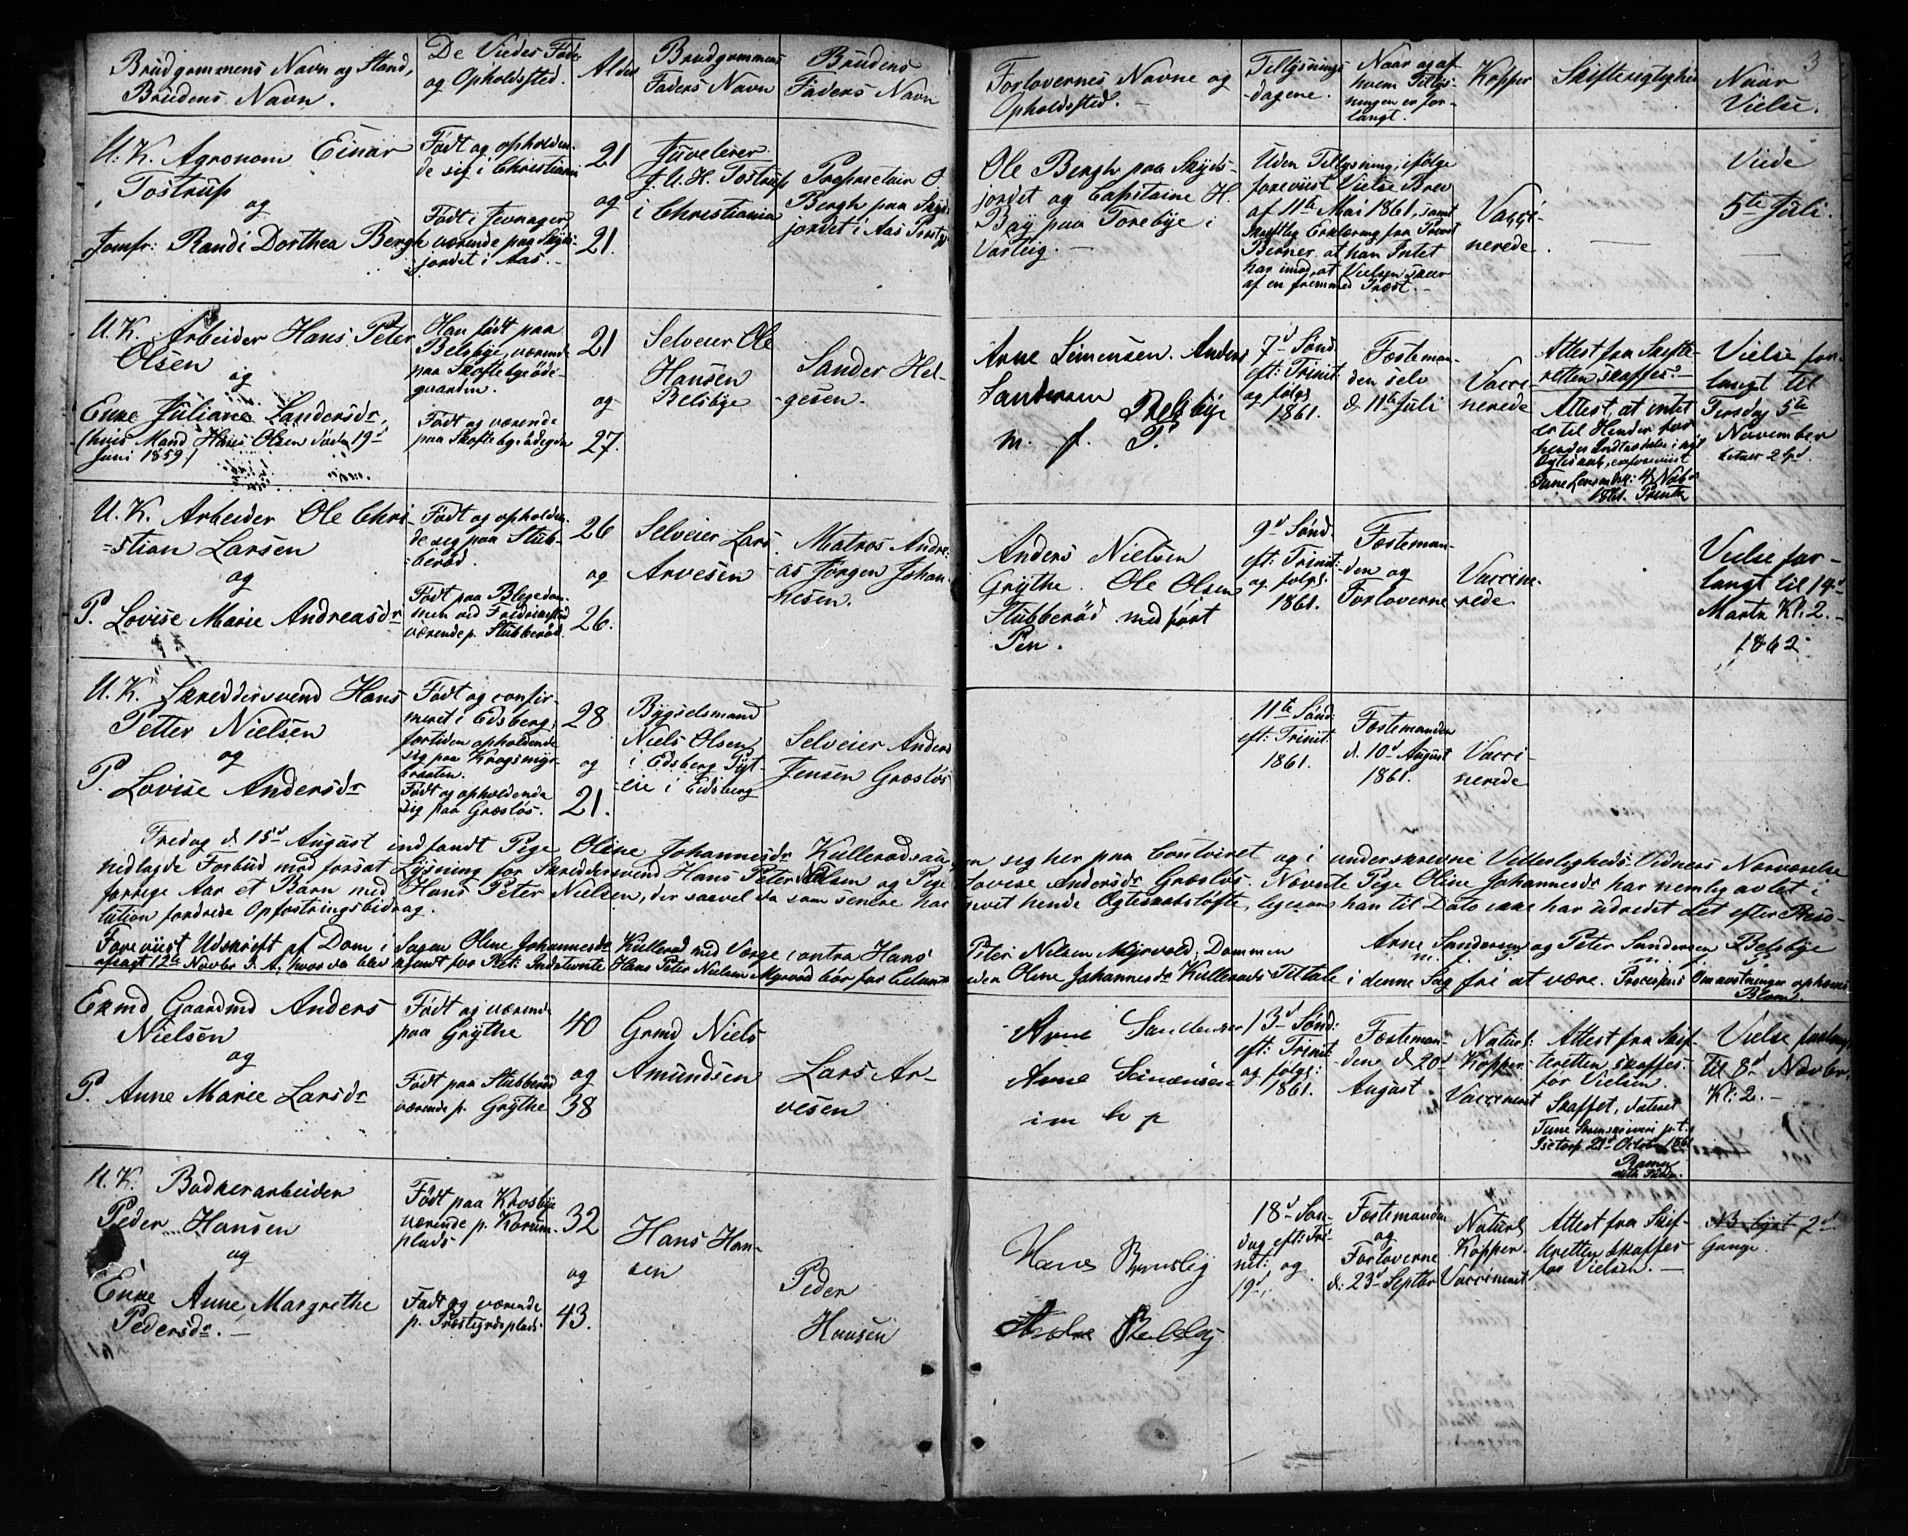 3
Brudgommens Navn og Stand,
Brudens Navn.
De Viedes Føde
og Opholdssted.
Alder
Brudgommens
Faders Navn
Brudens
Faders Navn
Forlovernes Navne og
Opholdssted.
Tillysnings
-dagene.
Naar og af
hvem Tillys-
ningen er for-
langt.
Kopper
Skifterigtighed
Naar
Vielse.
U. K. Agronom Einar
Tostrup
og
Jomfr: Randi Dorthea Bergh
Født og opholden-
de sig i Christiania
Født i Jevnager
værende paa Skyds-
jordet i Aas.
21
og
21.
Juveleer
J. U. H. Tostrup
i Christiania
Proprietair O
Bergh paa Skyds-
jordet i Aas Prstgj
Ole Bergh paa Skyds-
jordet og Capitaine H.
Bay paa Torebye i
Varteig.
Uden Tillysning, ifølge
foreviist Vielse Brev
af 11te Mai 1861, samt
Skriftlig Erklæring fra Provst
Berner, at han Intet
har imod, at Vielsen skeer
af en fremmed Præst.
Vacci-
nerede.
Viede
5te Juli.
U. K. Arbeider Hans Peter
Olsen
og
Enke Juliane Sandersdr,
(hvis Mand Hans Olsen døde 19d
Juni 1859)
Han født paa
Belsbye, værende
paa Skoftebyrøds-
gaarden.
Født og værende
paa Skoftebyrødegrn
21
og
27.
Selveier Ole
Hansen
Belsbye
Sander Hel-
gesen.
Arne Simensen. Anders
Sandersen Belsbye
m. f. P.
7d Sønd.
eft: Trinit:
og følg:
1861.
Fæsteman-
den selv
d. 11te Juli
Vacci-
nerede
Attest fra Skifte-
retten skaffes.
Attest, at intet
er til Hinder for
hendes Indtrædelse i nyt
Ægteskab, er foreviist
Tune Lensmk: 4/ Novb
1861.
Vielse for-
langt til
Tirsdag 5te
November
U. K. Arbeider Ole Chri-
=stian Larsen
og
P. Lovise Marie Andreasdr
Født og opholden-
de sig paa Stub-
berød.
Født paa Blegedam-
men ved Fredrikstad
værende p. Stubberød.
26
og
26.
Selveier Lars
Arvesen
Matros Andre-
as Jørgen Johan-
nesen.
Anders Nielsen
Grythe. Ole Olsen
Stubberød med ført
Pen.
9d Sønd
eft: Trinit:
og følg:
1861.
Fæsteman-
den og
Forloverne
Vaccine-
rede.
Vielse for-
langt til 14d
Marts Kl: 2.
1862
U. K. Skreddersvend Hans
Petter Nielsen
og
P. Lovise Andersdr
Født og confir-
meret i Edsberg,
fortiden opholdende
sig paa Krogsmyr-
braaten.
Født og opholdende
sig paa Græsløs.
28
og
21.
Bygselsmand
Niels Olsen
i Edsberg Pgt-
eie i Eidsberg
Selveier Anders
Jensen Græsløs
11te Sønd:
eft: Trinit:
1861.
Fæstemanden
d. 10d August
1861.
Vacci-
nerede
Fredag d. 15d August indfandt Pige Oline Johannesdr Kullerødsaasen sig her paa Contoiret og i underskrevne Vitterligheds Vidners Nærværelse
nedlagde Forbud mod forsat Lysning for Skreddersvend Hans Peter Nielsen og Pige Lovise Andersdr Græsløs. Nævnte Pige Oline Johannesdr har nemlig avlet i
forrige Aar et Barn med Hans Peter Nielsen, der saavel da som senere har givet hende Ægteskabsløfte, ligesom han til Dato ikke har udredet det efter Reso-
lution fordrede Opfostringsbidrag.
Arne Sandersen og Peter Sandersen Belsbye
m. f. P. m. f. P.
Foreviist Udskrift af Dom i Sagen Oline Johannesdr Kullerød med Verge contra Hans Peter Nilsen Myrvold; Dommen
afsagt 12te Novbr d. A., hvorved blev kjendt for Ret: Indstevnte Hans Peter Nielsen Myrvold bør for Citantinden Oline Johannesdr Kullerøds Tiltale i denne Sag fri at være. Procespens Omkostninger ophæves
Enkmd Gaardmd Anders
Nielsen
og
P. Anne Marie Larsdr
Født og værende
paa Grythe
Født paa Stubberød
værende p. Grythe
40
og
38
Grmd Niels
Amundsen
Lars Ar-
vesen
Arne Sandersen
Arne Simensen
m h p
13d Sønd:
eft: Trinit:
og følg:
1861.
Fæsteman-
den d. 20d
August
Naturl:
Kopper.
Vaccineret
Attest fra Skif-
teretten skaffes
før Vielsen.
Skaffet, dateret
Tune Sorenskriveri p. t.
Isetorp 21d Octob 1861
Vielse forlangt
til 8d Novbr.
Kl: 2.
U. K. Bødkerarbeider
Peder Hansen
og
Enke Anne Margrethe
Pedersdr.
Født paa Krosbye
værende p. Korum-
plads
Født og værende
p. Prestgrdsplads
32
og
43.
Hans Han-
sen
Peder
Hansen
Hans
18d Søn-
dag eft: Tri-
nit: og
19d,
Fæstemanden
og
Forloverne
d. 23d Septbr
Naturl
Kopper.
Vaccineret
Attest fra Skif-
teretten skaffes
før Vielsen.
NB. lyst 2d
Gange.